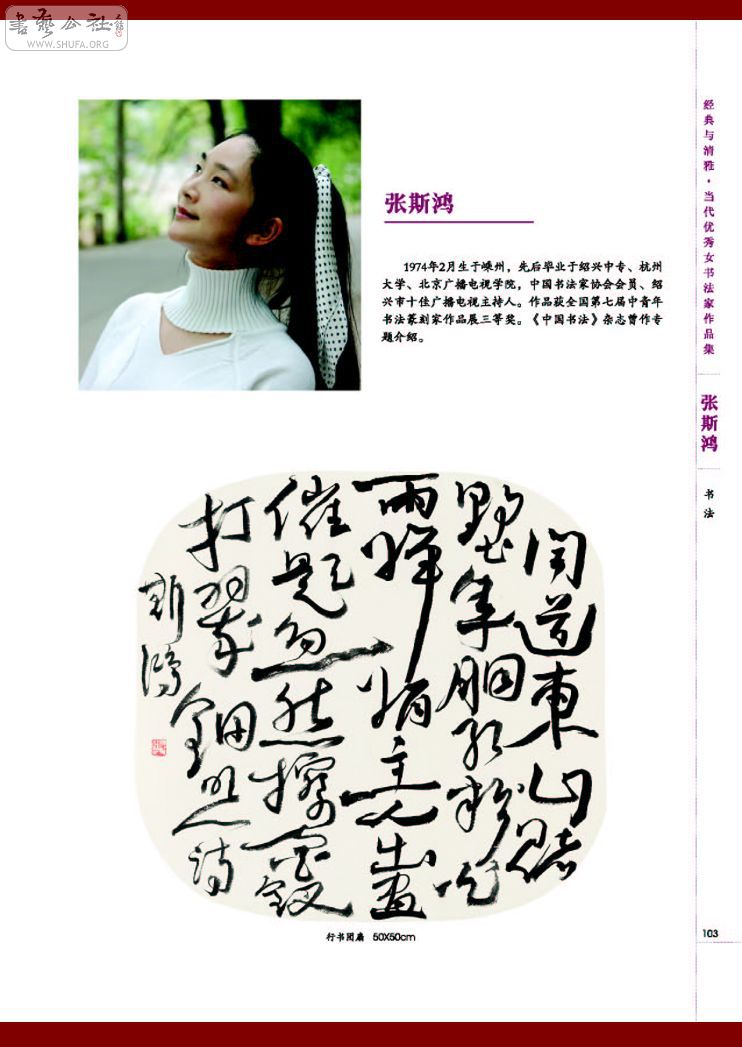 書藝公社
WWW.SHUFA.ORG
张斯鸿
1974年2月生于嵊州，先后毕业于绍兴中专、杭州
大学、北京广播电视学院，中国书法家协会会员、绍
兴市十佳广播电视主持人。作品获全国第七届中青年
书法篆刻家作品展三等奖。《中国书法》杂志曾作专
题介绍。
闻道東山賭
墅年胭红粉
雨婵娟主人出画
催题忽然
打翠钿
斯鸿
行书团扇 50X50cm
经典与清雅·当代优秀女书法家作品集
张斯鸿
书法
103